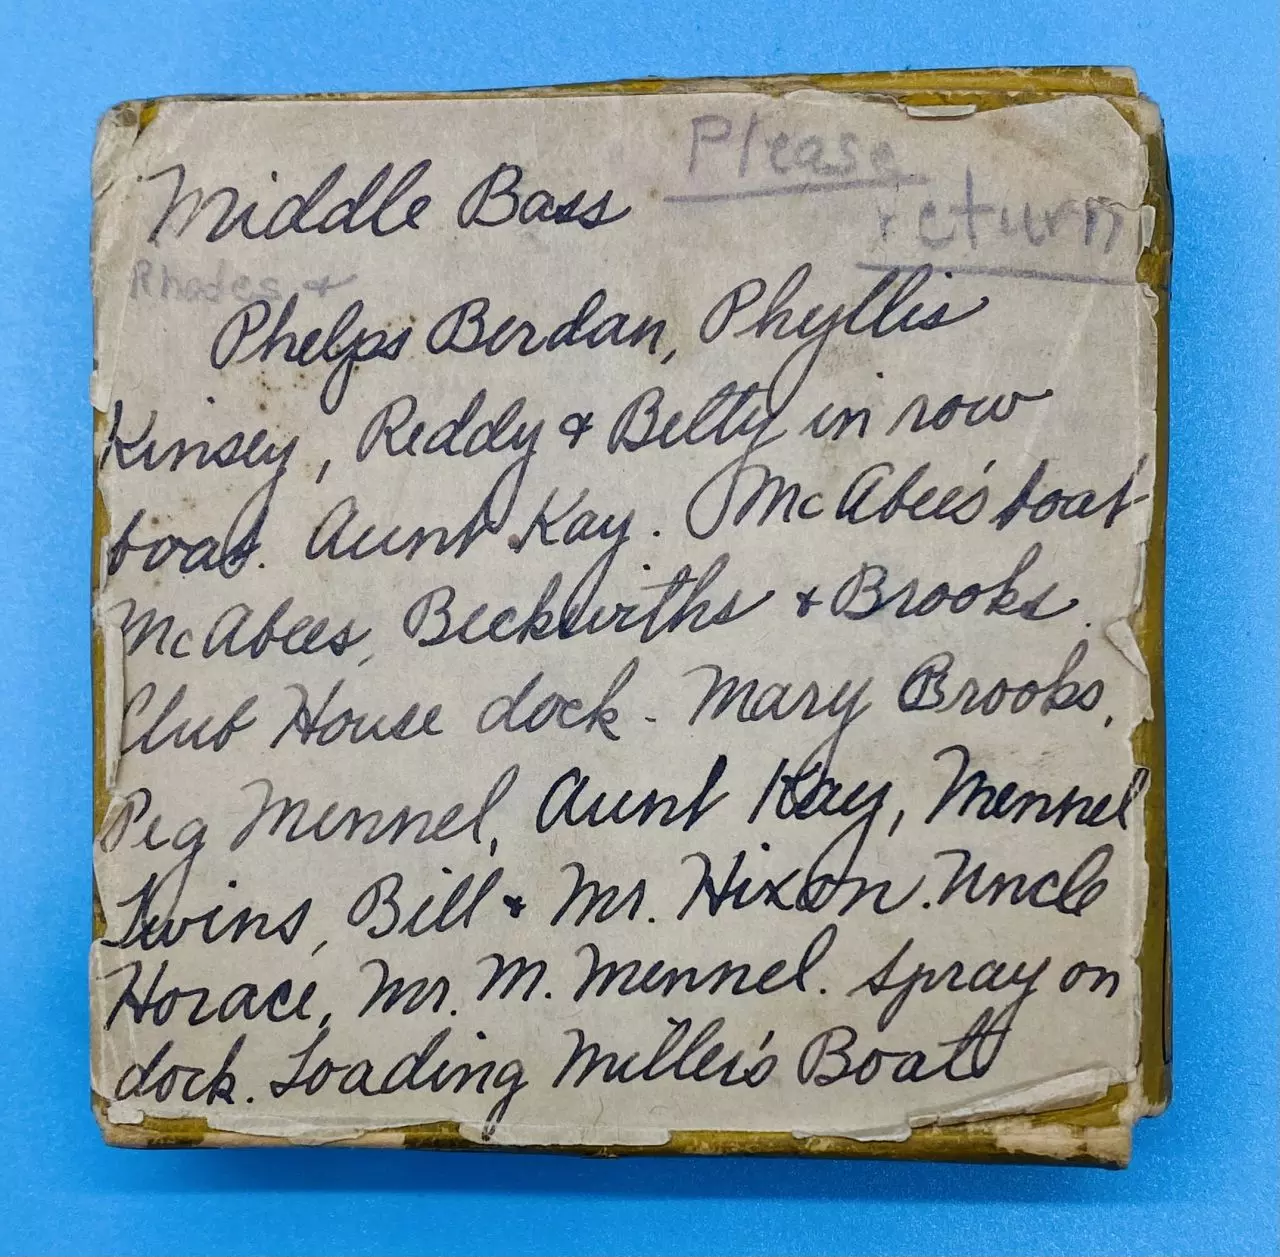 Please
return
Middle Bass
Rhodes &
Phelps Berdan, Phyllis
Kinsey, Reddy & Betty in row
boat. Aunt Kay. McAbee's boat
McAbees, Beckwiths & Brooks.
Club House dock. Mary Brooks,
Peg Mennel, Aunt Kay, Mennel
Twins, Bill & Mr. Hixon. Uncle
Horace, Mr. M. Mennel. Spray on
dock. Loading Miller's Boat